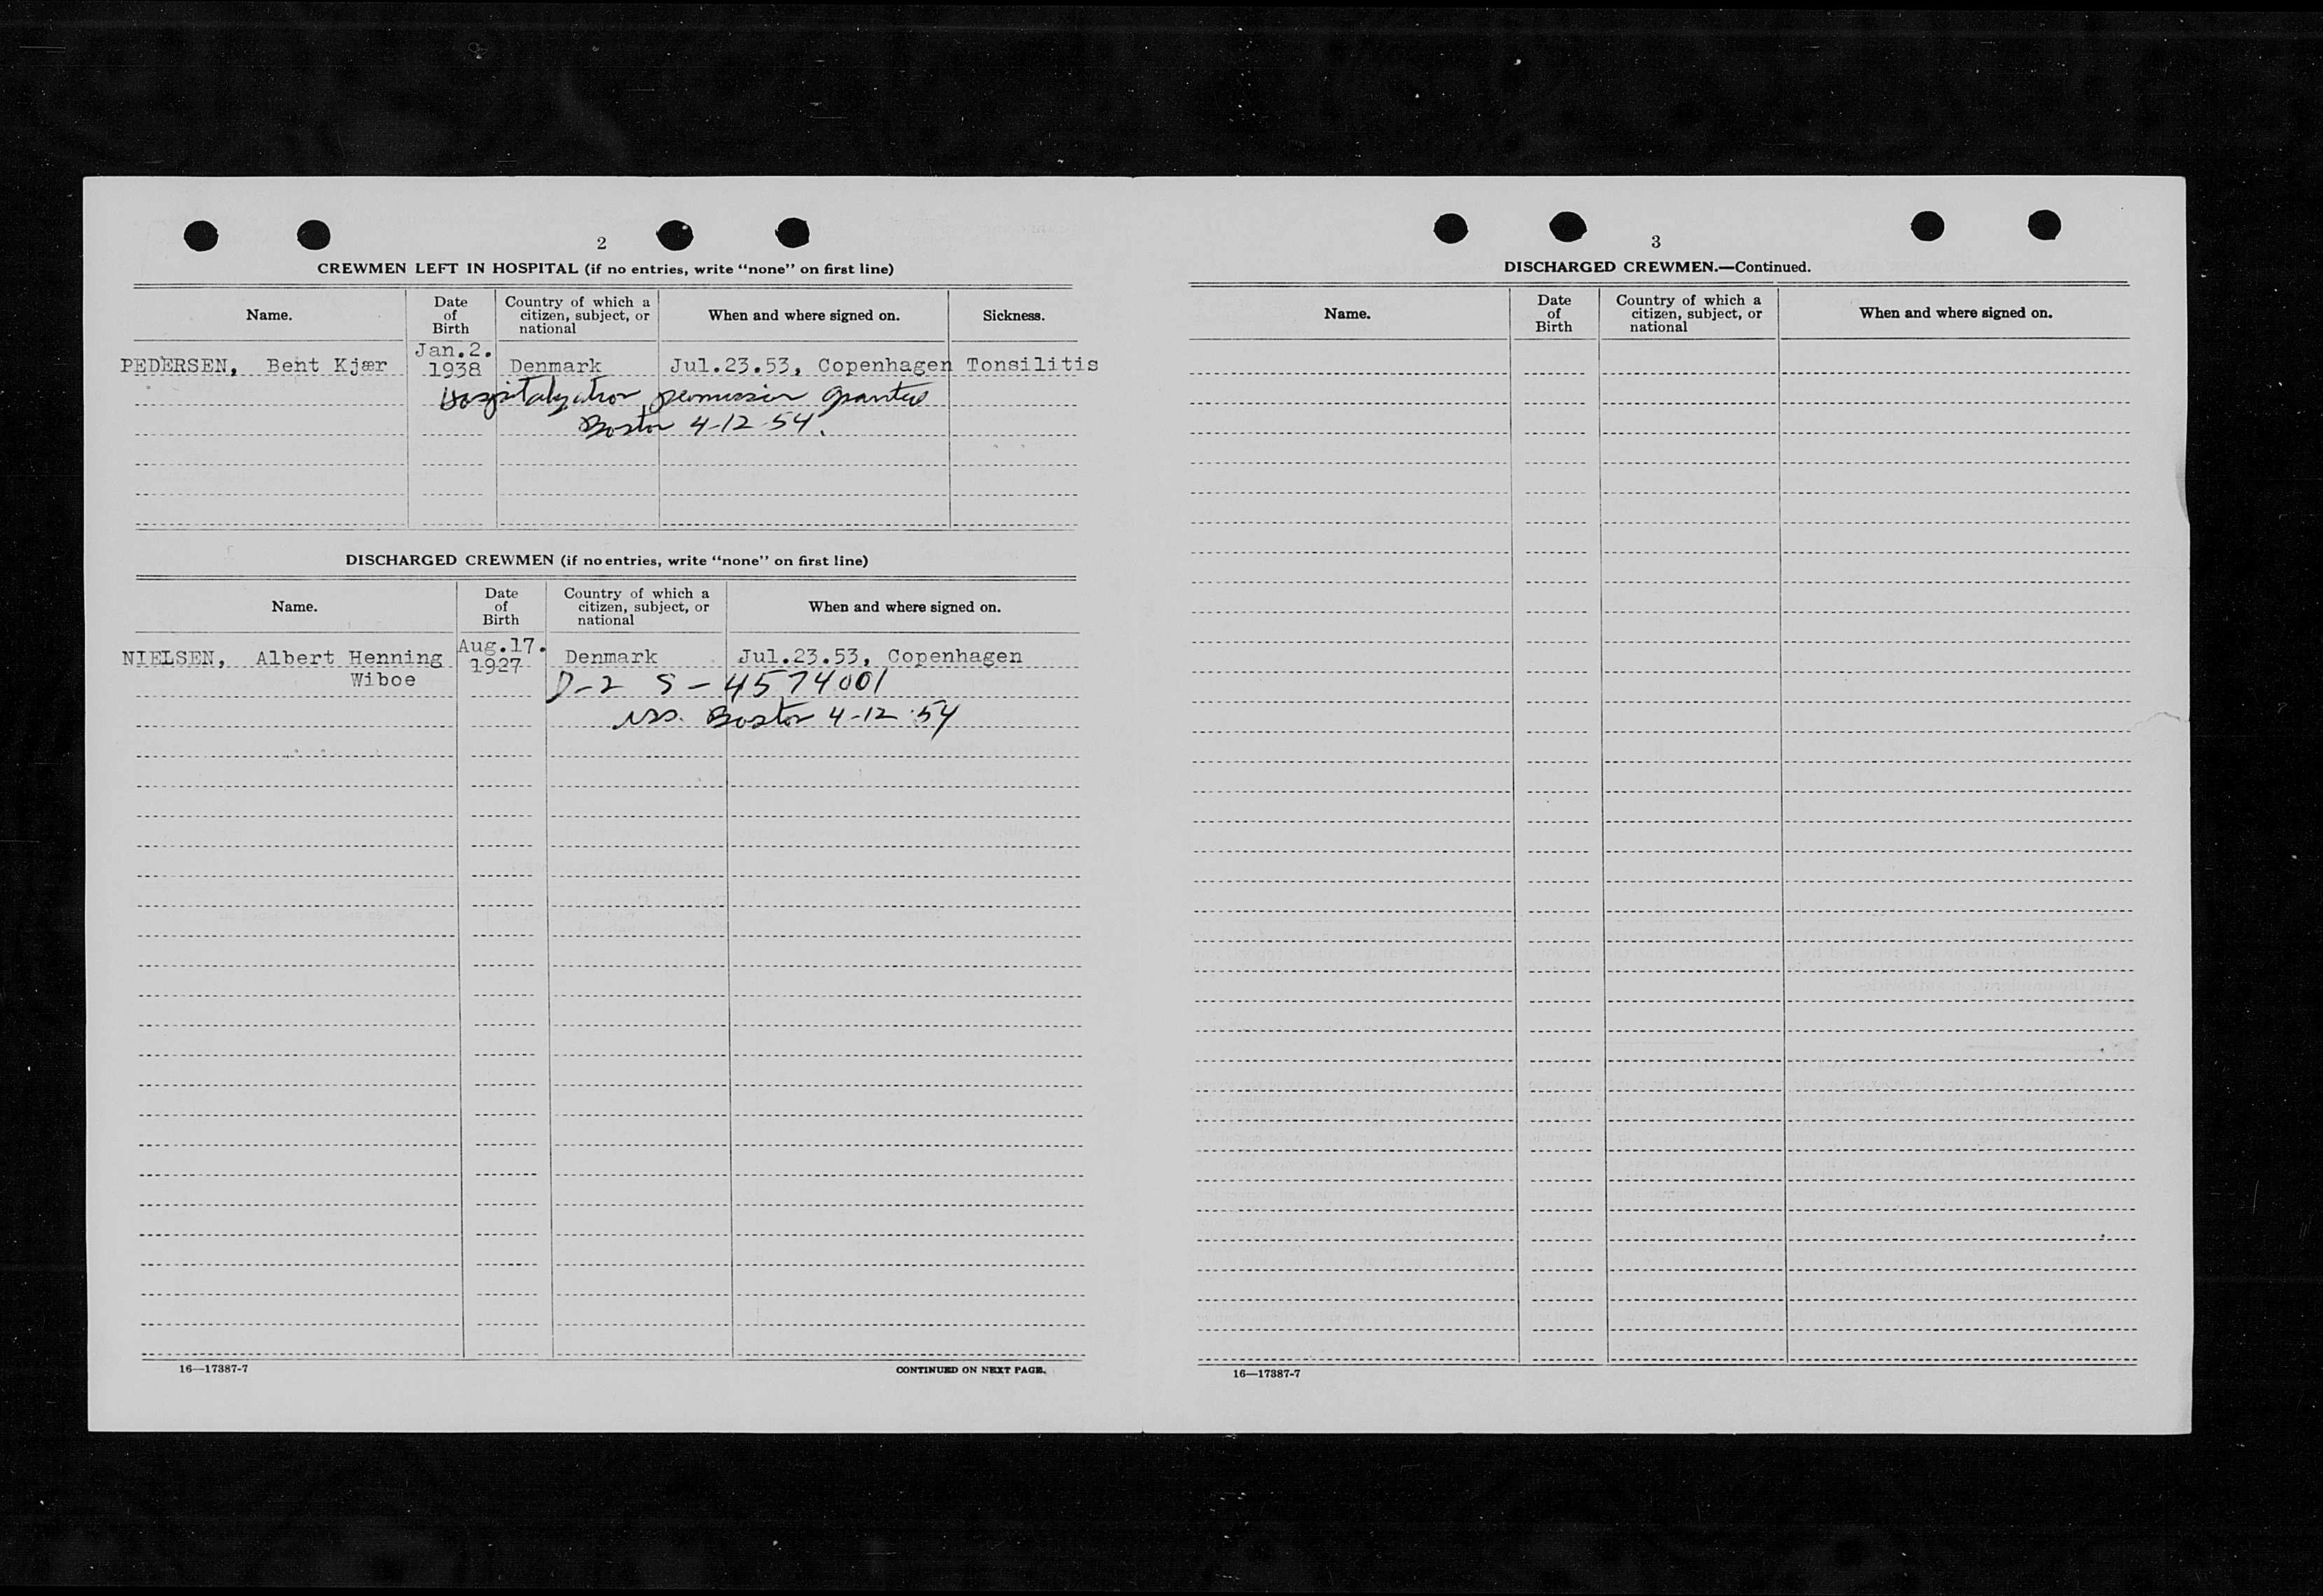 2
CREWMEN LEFT IN HOSPITAL (if no entries, write “none” on first line)
Name. Date of Birth Country of which a citizen, subject, or national When and where signed on. Sickness.
PEDERSEN, Bent Kjær Jan.2. 1938 Denmark Jul.23.53, Copenhagen Tonsilitis
Hospitalization permission granted
Boston 4-12-54.
DISCHARGED CREWMEN (if no entries, write “none” on first line)
Name. Date of Birth Country of which a citizen, subject, or national When and where signed on.
NIELSEN, Albert Henning Aug.17. 1927 Denmark Jul.23.53, Copenhagen
Wiboe D-2 S-4574001
iss. Boston 4-12-54
16—17387-7 CONTINUED ON NEXT PAGE.
3
DISCHARGED CREWMEN.—Continued.
Name. Date of Birth Country of which a citizen, subject, or national When and where signed on.
16—17387-7